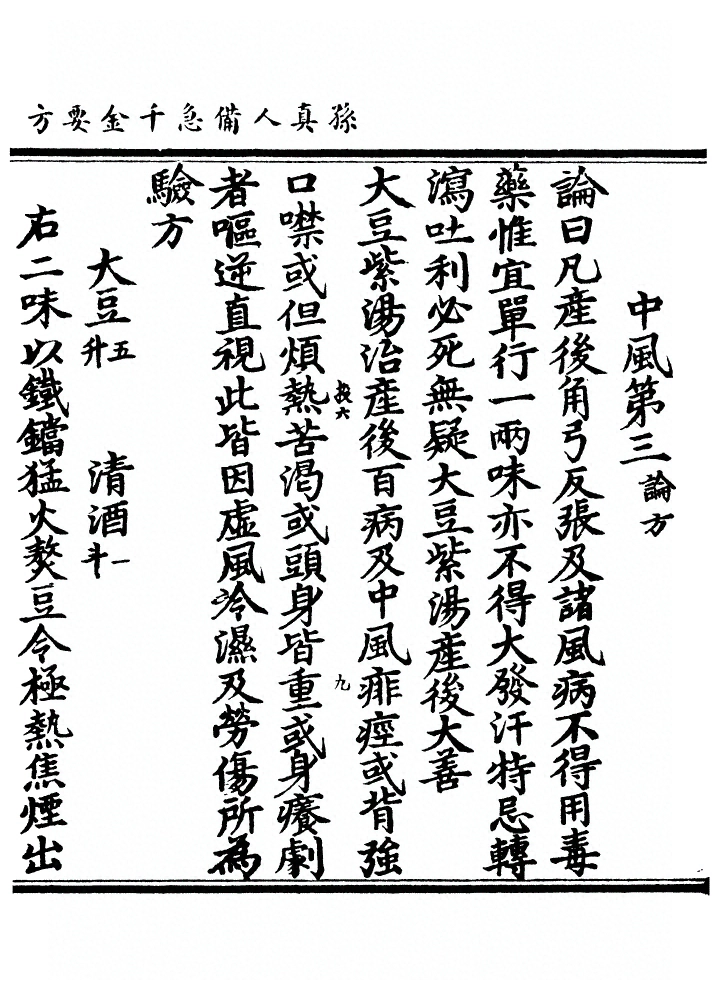 孫真人備急千金要方
中風第三 論方
論曰凡產後角弓反張及諸風病不得用毒
藥惟宜單行一兩味亦不得大發汗特忌轉
瀉吐利必死無疑大豆紫湯產後大善
大豆紫湯治產後百病及中風痱痙或背強
口噤或但煩熱苦渴或頭身皆重或身癢劇
者嘔逆直視此皆因虛風冷濕及勞傷所為
驗方
大豆 五升 清酒 一斗
右二味以鐵鐺猛火熬豆令極熱焦煙出
九